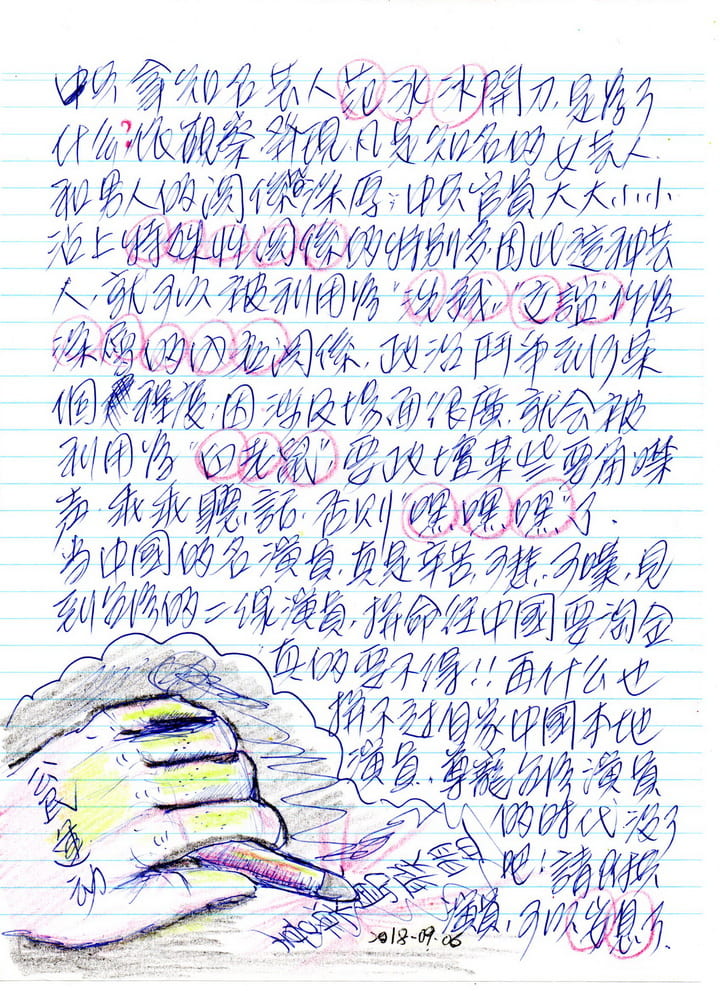 中共拿知名艺人范冰冰開刀,是為了
什么?依觀察發現,凡是知名的女艺人
和男人的関係深厚;中共官員大大小小
沾上特殊性関係的特别多,因此這种芸
人,就可以被利用為"洗錢""交誼"作為
深層的內在関係,政治鬥争到了某
個程度;因涉及場面很廣,就会被
利用為"白老鼠",要政壇某些要角噤
声,乖乖聽話,否則"嘿嘿嘿"了.
当中國的名演員,真是辛苦,可悲,可嘆,見
到台灣的二線演員,拼命往中國要淘金
真的要不得!!再什么也
拼不过自家中國本地
演員,尊寵台灣演員
的时代没了
吧!請
演員,可以安息了
公民運動
2018-09-06